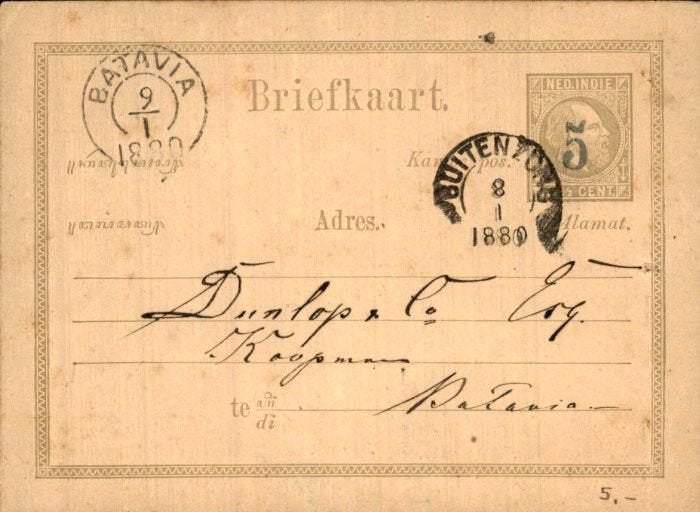 BATAVIA
9
1
1880
Briefkaart.
NED. INDIE
5
CENT.
BUITENZORG
8
1
1880
Adres.
Alamat.
Dunlop & Co Esq.
Koopman
te añ/di Batavia
5.-